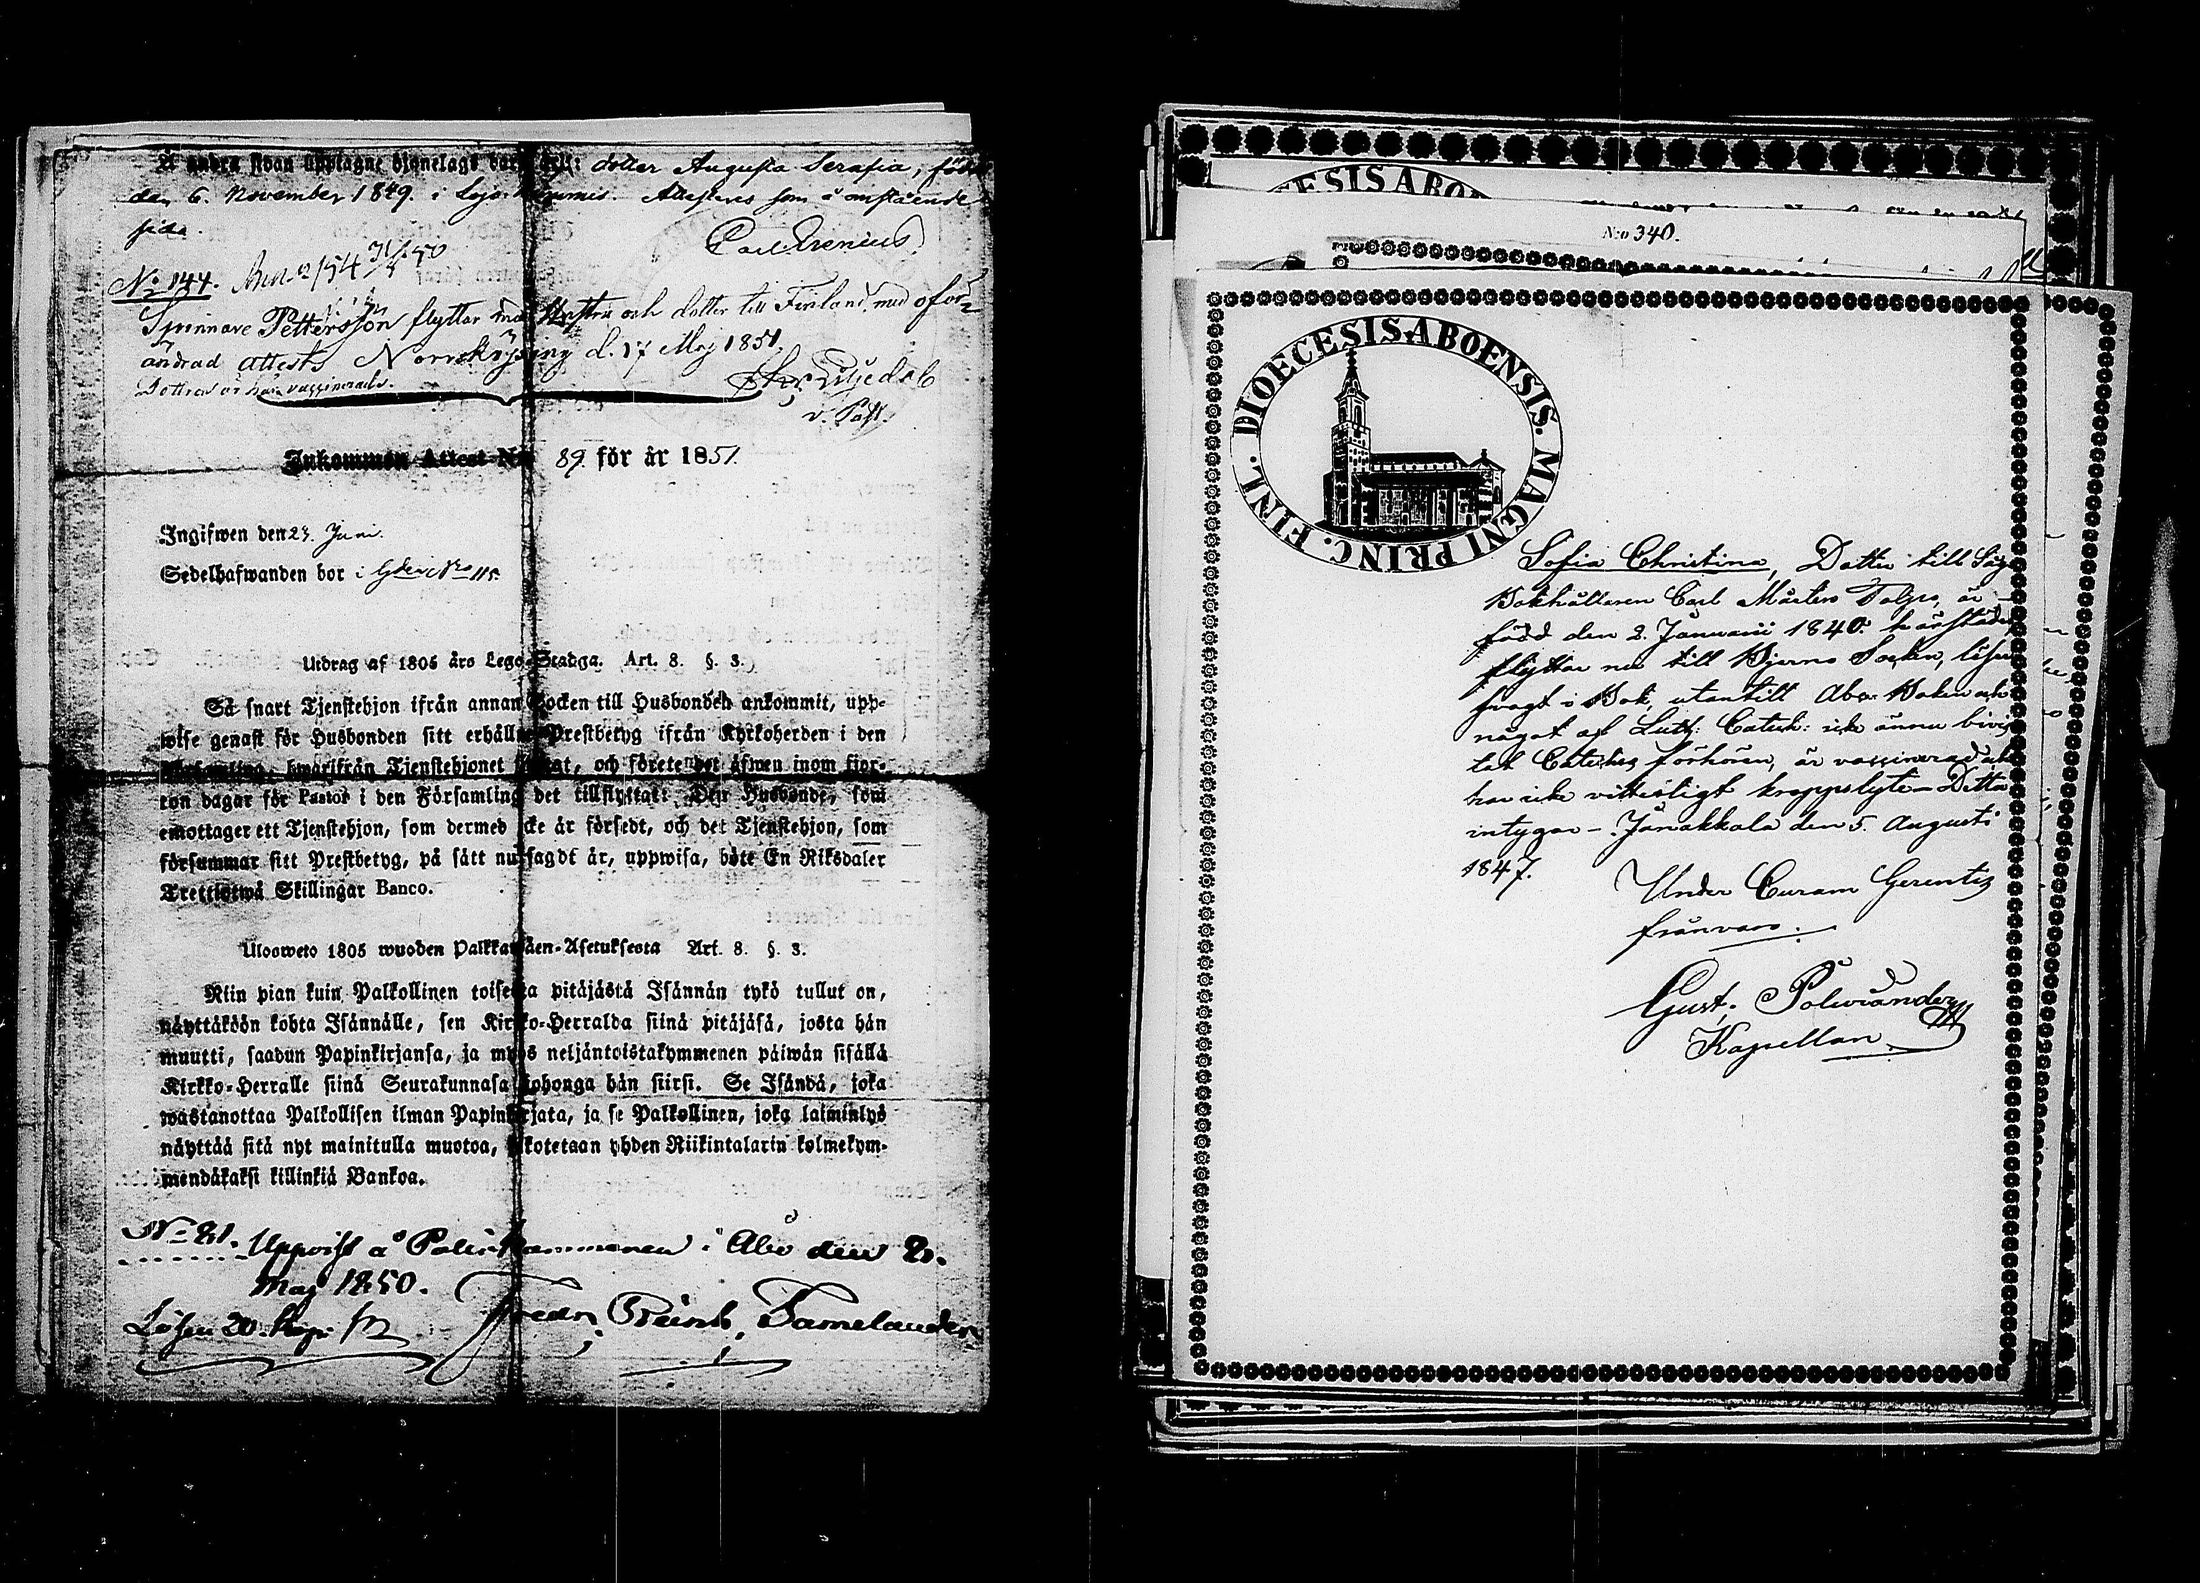 Å andra sidan upptagne tjonelags barn dotter Augusta Serafia, född
den 6. November 1849. i Lojo Attesteras som å omstående
sida.
Carl Grenius
No 144.
Spinnare Pettersson flyttar med Hustru och dotter till Finland med oför-
ändrad attest. Norrköping d. 17 Maj 1851.
Dottren är här vaccinerad.
Liljedal
v. Past.
Inkommen Attest No 89. för år 1851.
Ingifwen den 23. Juni.
Sedelhafwanden bor i No 115.
Utdrag af 1805 års Lego-Stadga. Art. 8. §. 3.
Så snart Tjenstehjon ifrån annan Socken till Husbonden ankommit, upp-
wise genast för Husbonden sitt erhållne Prestbetyg ifrån Kyrkoherden i den
Församling, hwarifrån Tjenstehjonet flyttat, och förete det äfwen inom fjor-
ton dagar för Pastor i den Församling det tillflyttat: Den Husbonde, som
emottager ett Tjenstehjon, som dermed icke är försedt, och det Tjenstehjon, som
försummar sitt Prestbetyg, på sätt nu sagdt är, uppwisa, böte En Riksdaler
Trettiotwå Skillingar Banco.
Ulosweto 1805 wuoden Palkkawäen-Asetuksesta Art. 8. §. 3.
Niin pian kuin Palkollinen toisesta pitäjästä Isännän tykö tullut on,
näyttäköön kohta Isännälle, sen Kirkko-Herralda siinä pitäjäsä, josta hän
muutti, saadun Papinkirjansa, ja myös neljäntoistakymmenen päiwän sisällä
Kirkko-Herralle siinä Seurakunnasa johonga hän siirsi. Se Isändä, joka
wastanottaa Palkollisen ilman Papinkirjata, ja se Palkollinen, joka laiminlyö
näyttää sitä nyt mainitulla muotoa, sakotetaan yhden Riikintalarin kolmekym-
mendäkaksi killinkiä Bankoa.
No 21. Uppvist å Poliskammaren i Åbo den 2.
Maj 1850.
Lösen 20. kop. Fredr. Reinh. Tamelander
No 340.
DIOECESIS ABOENSIS. MAGNI PRINC. FINL.
Sofia Christina, Dotter till Såg
Bokhållaren Carl Mårtens Tolpo, är
född den 2. Januarii 1840. härstädes
flyttar nu till Bjerno Socken, läser
svagt i Bok, utantill Abc Boken och
något af Luth: Catech: icke ännu bivis
tat Cateches förhören, är vaccinerad och
har icke vitterligt kroppslyte – Detta
intygar – Janakkala den 5. Augusti
1847.
Under Curam Gerentis
frånvaro.
Gust. Polviander
Kapellan